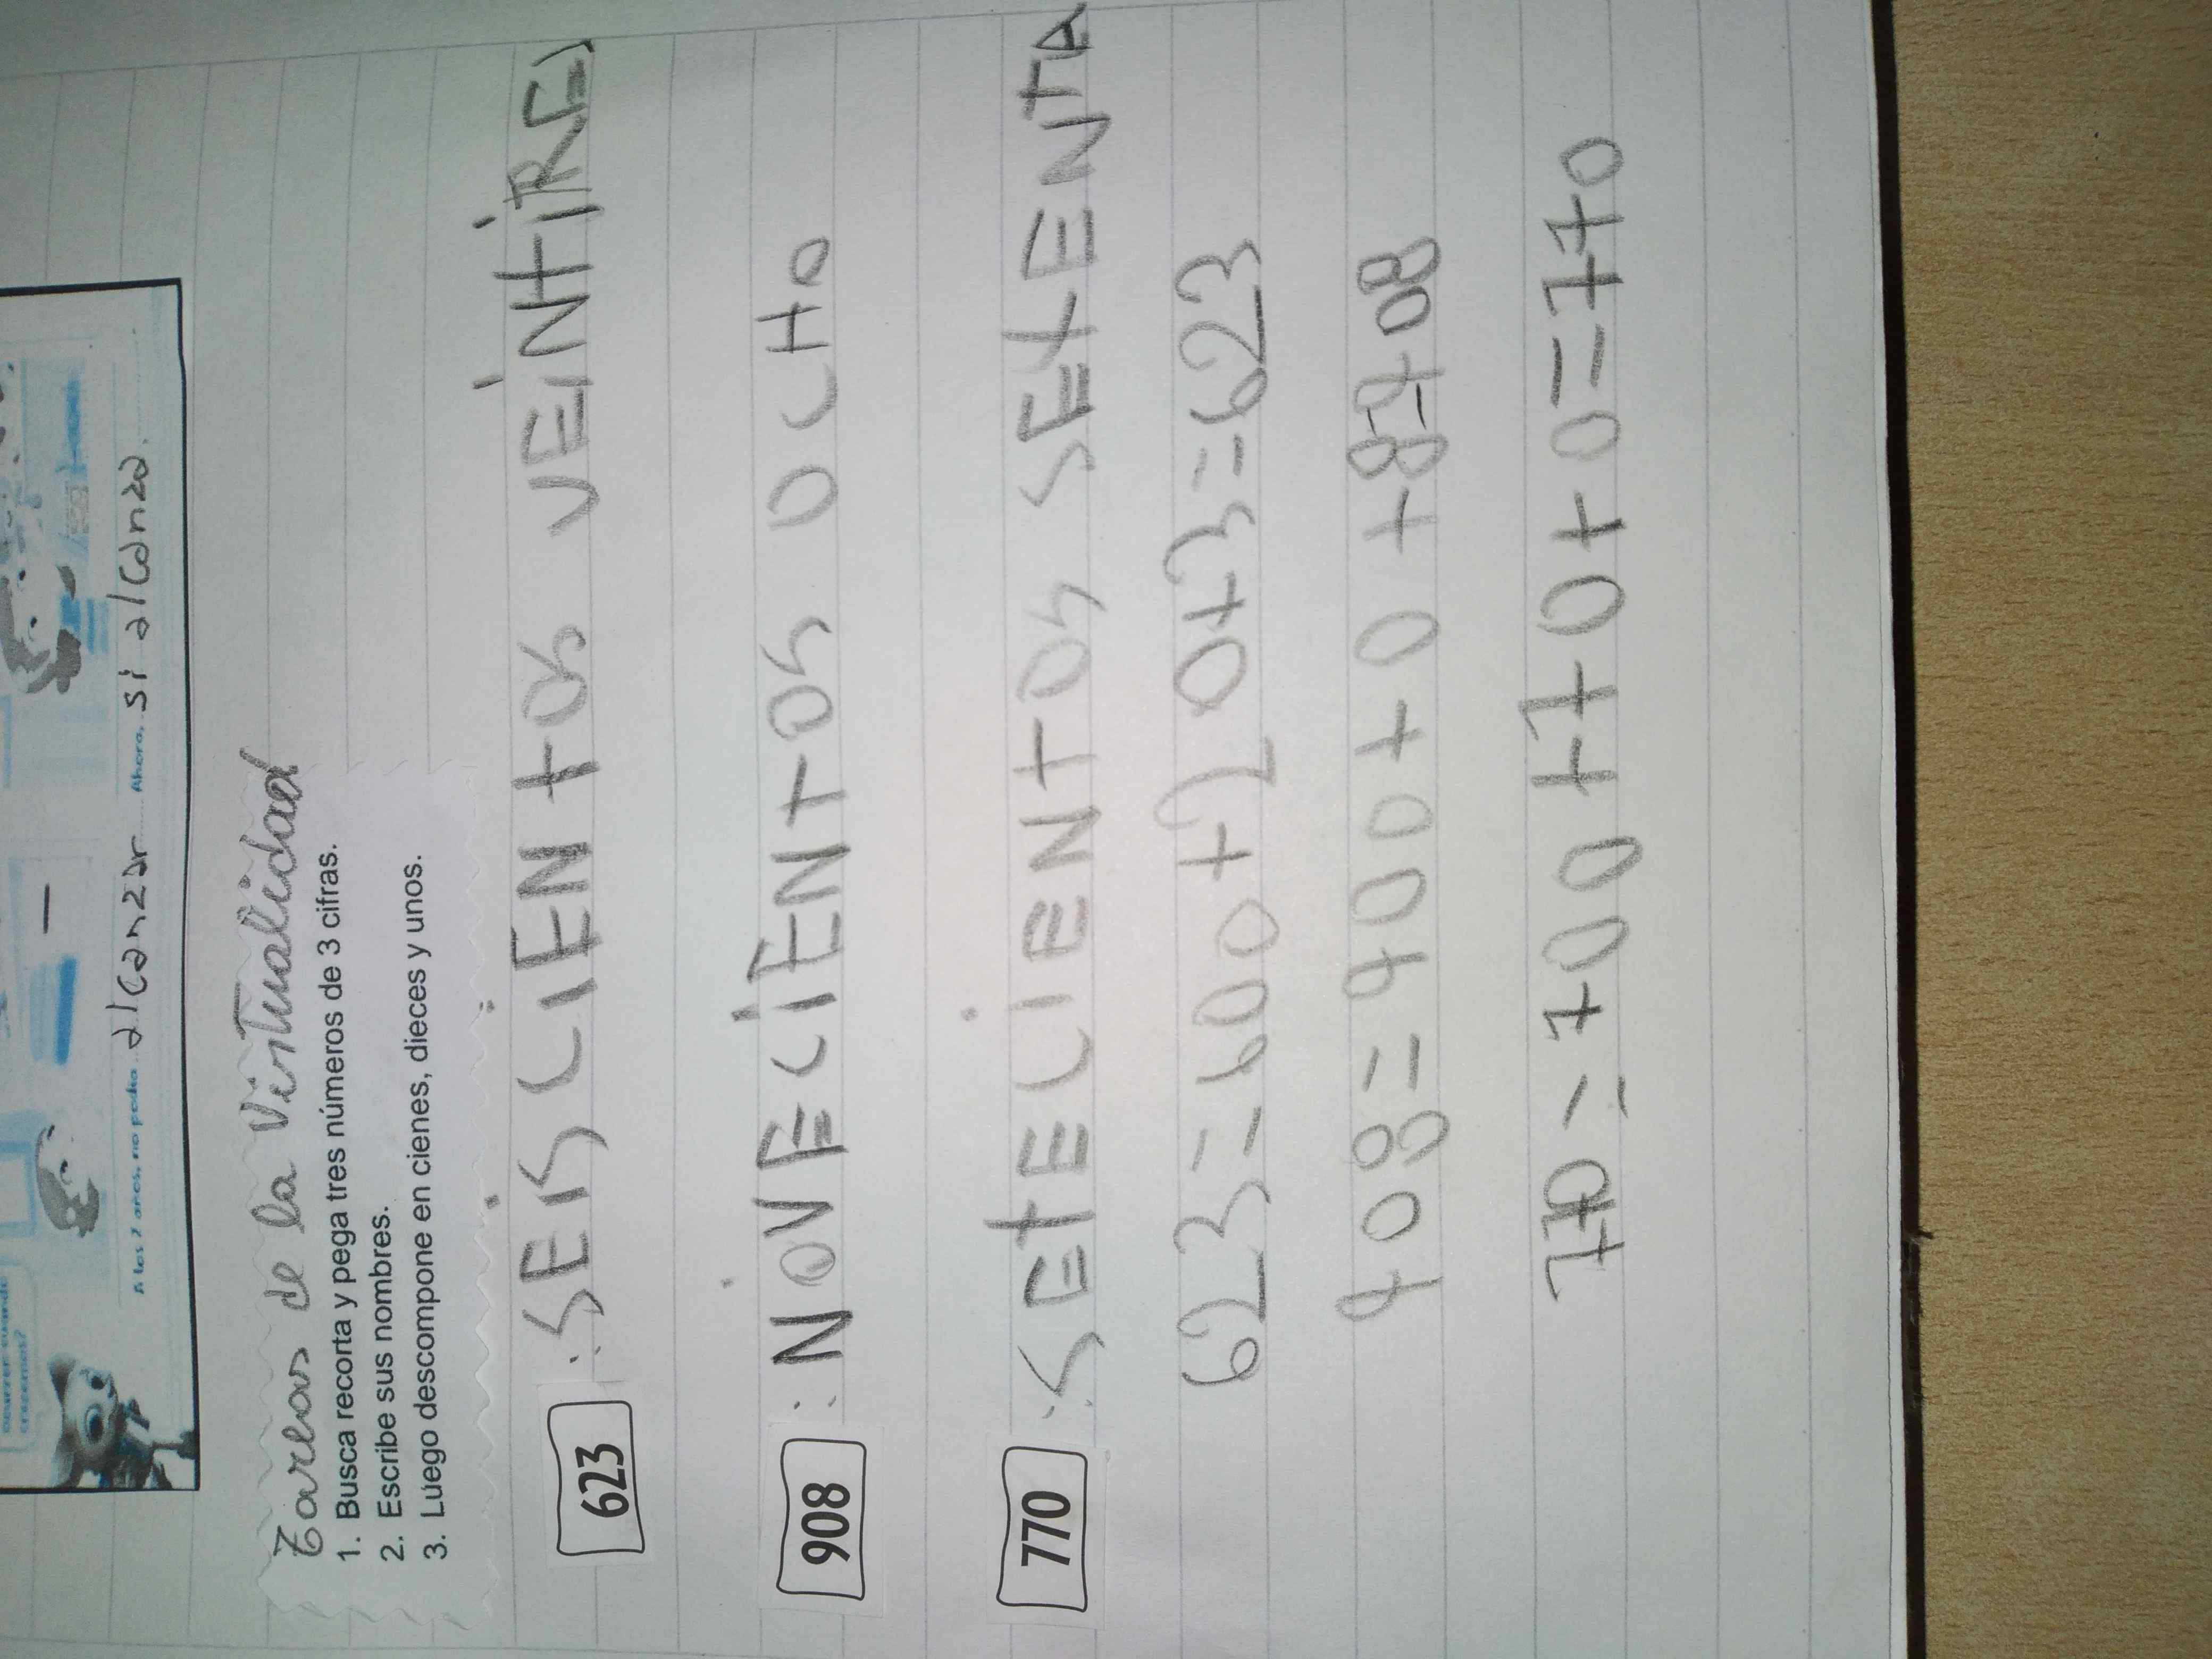 A los 7 años, no podía alcanzar Ahora, si alcanzo.
Tareas de la Virtualidad
1. Busca recorta y pega tres números de 3 cifras.
2. Escribe sus nombres.
3. Luego descompone en cienes, dieces y unos.
623 : SEISCIENTOS VEINTIRE)
908 : NOVECIENTOS OCHO
770 : SETECIENTOS SETENTA
623=600+20+3=623
908=900+0+8=908
770=700+70+0=770